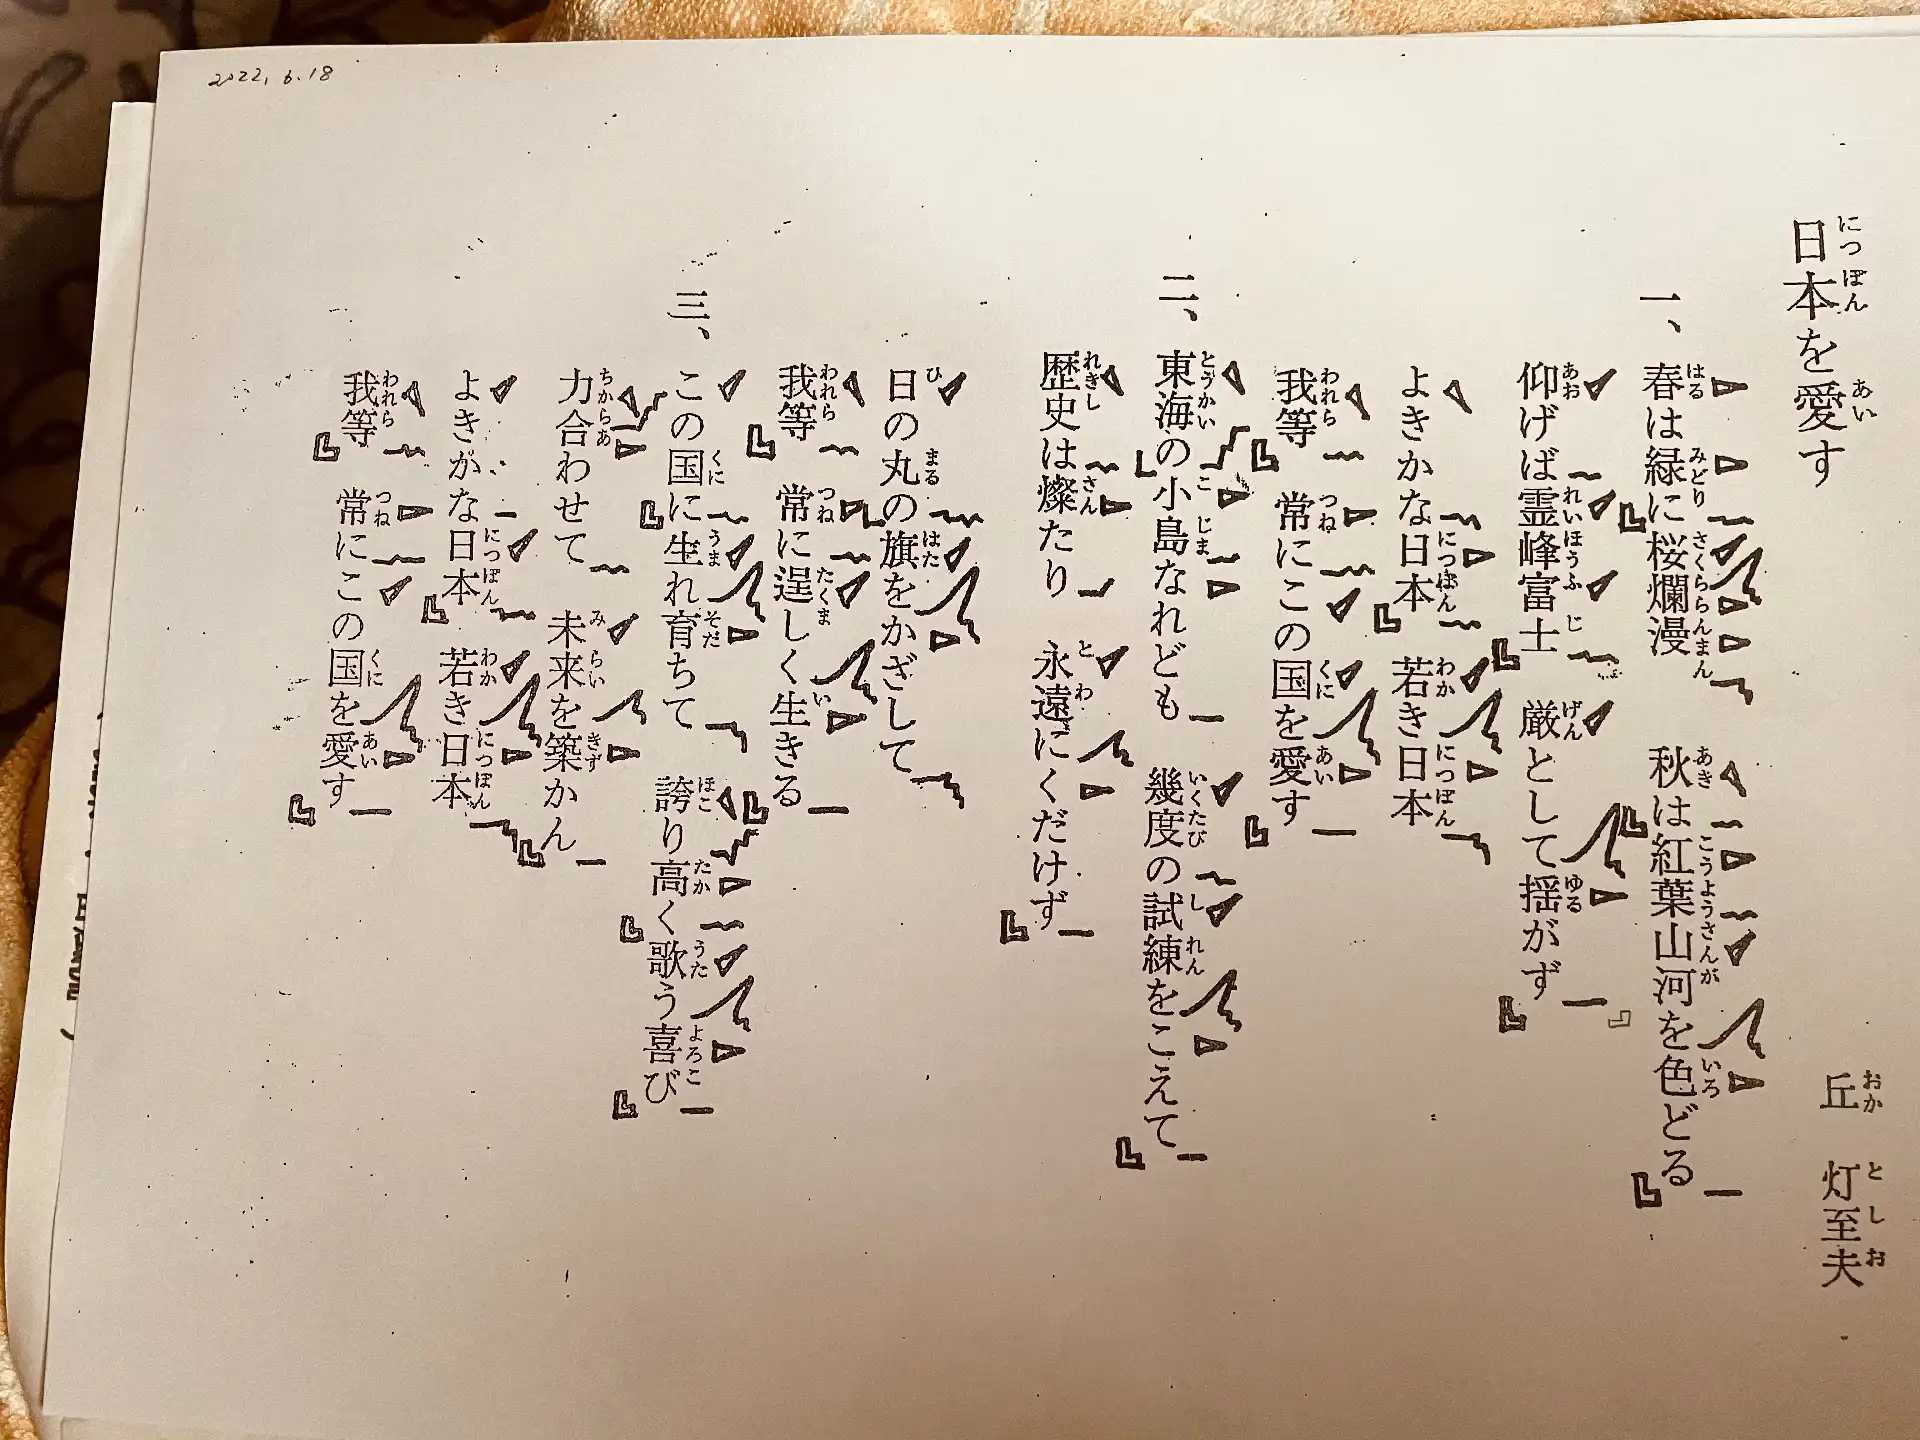 2022, 6.18
日本を愛す
丘 灯至夫
一、春は緑に桜爛漫 秋は紅葉山河を色どる
仰げば霊峰富士 厳として揺がず
よきかな日本 若き日本
我等 常にこの国を愛す
二、東海の小島なれども 幾度の試練をこえて
歴史は燦たり 永遠にくだけず
日の丸の旗をかざして
我等 常に逞しく生きる
三、この国に生れ育ちて 誇り高く歌う喜び
力合わせて 未来を築かん
よきかな日本 若き日本
我等 常にこの国を愛す